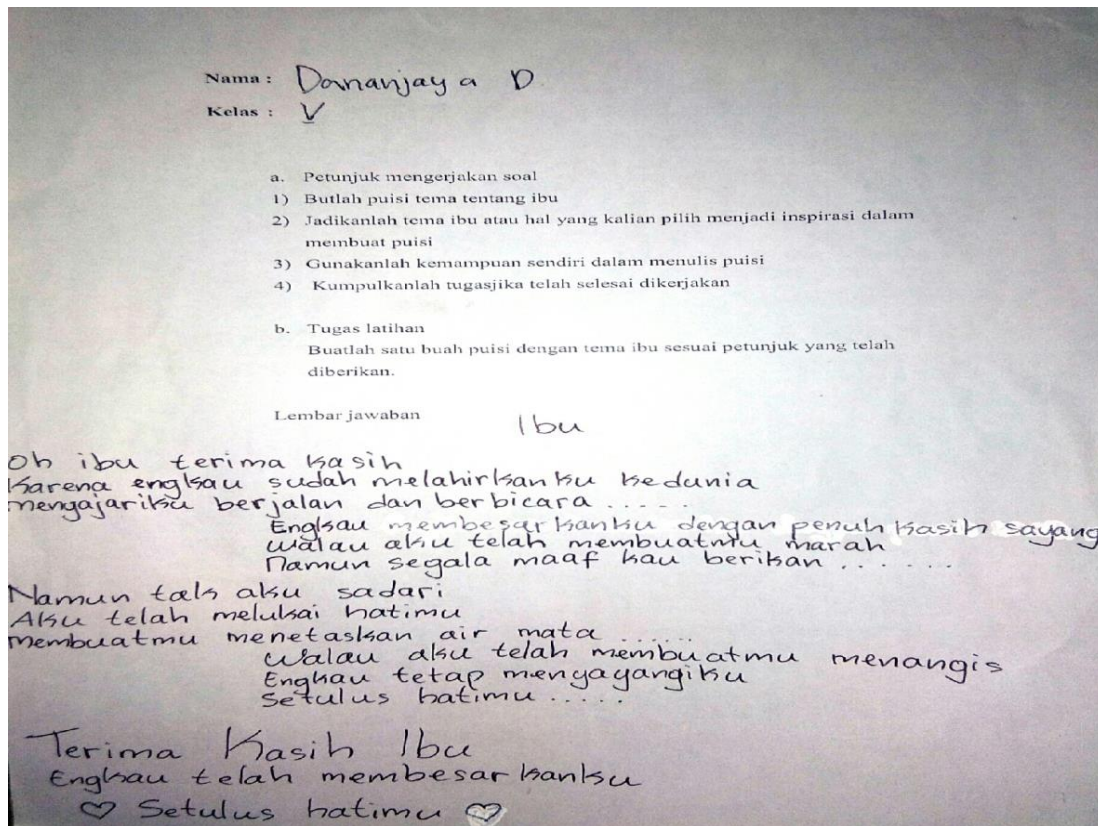 Nama : Dananjaya D
Kelas : V
a. Petunjuk mengerjakan soal
1) Butlah puisi tema tentang ibu
2) Jadikanlah tema ibu atau hal yang kalian pilih menjadi inspirasi dalam
membuat puisi
3) Gunakanlah kemampuan sendiri dalam menulis puisi
4) Kumpulkanlah tugasjika telah selesai dikerjakan
b. Tugas latihan
Buatlah satu buah puisi dengan tema ibu sesuai petunjuk yang telah
diberikan.
Lembar jawaban
Ibu
Oh ibu terima kasih
Karena engkau sudah melahirkanku kedunia
mengajariku berjalan dan berbicara .....
Engkau membesarkanku dengan penuh kasih sayang
walau aku telah membuatmu marah
Namun segala maaf kau berikan ......
Namun tak aku sadari
Aku telah melukai hatimu
membuatmu menetaskan air mata .....
walau aku telah membuatmu menangis
Engkau tetap menyayangiku
Setulus hatimu .....
Terima Kasih Ibu
Engkau telah membesarkanku
♡ Setulus hatimu ♡